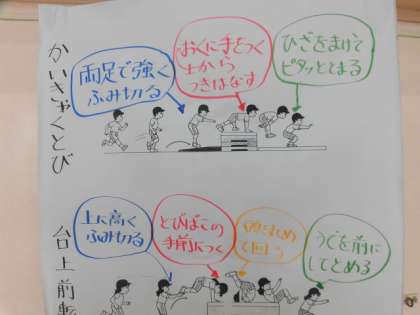 かいきゃくとび
両足で強く
ふみ切る
おくに手をつく
上から
つきはなす
ひざをまげて
ピタッととまる
台上前転
上に高く
ふみ切る
とびばこの
手前につく
て回る
うでを前に
してとめる